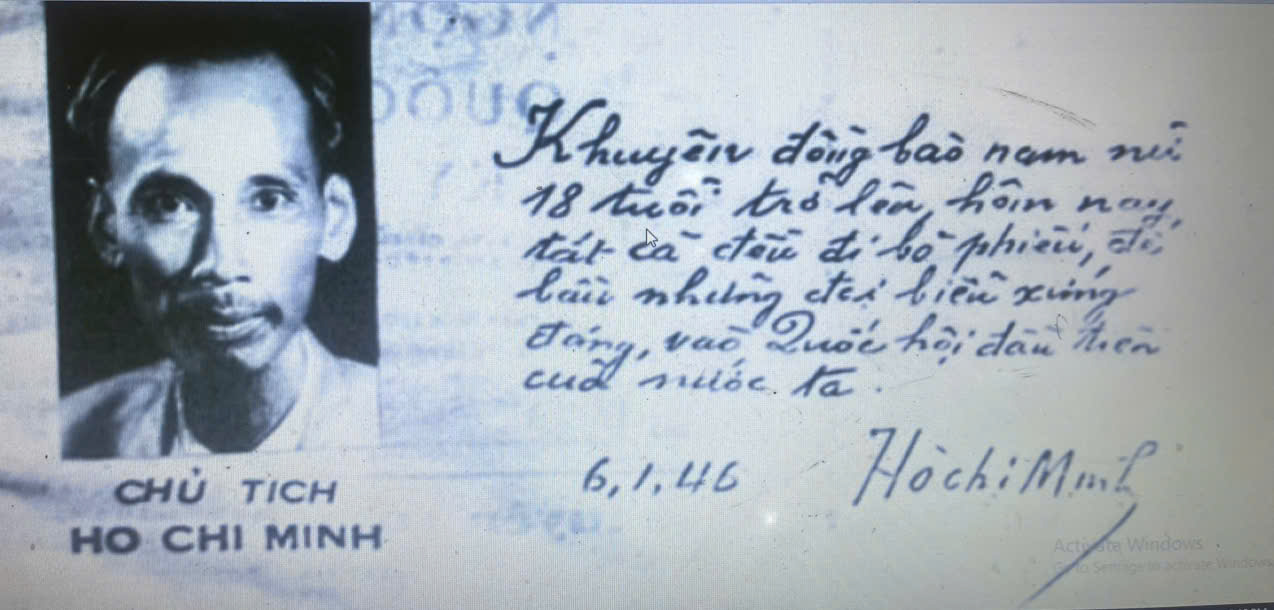 Khuyên đồng bào nam nữ
18 tuổi trở lên, hôm nay,
tất cả đều đi bỏ phiếu, để
bầu những đại biểu xứng
đáng, vào Quốc hội đầu tiên
của nước ta.
6,1,46 Hồ chí Minh
CHỦ TICH
HO CHI MINH
Activate Windows
Go to Settings to activate Windows.